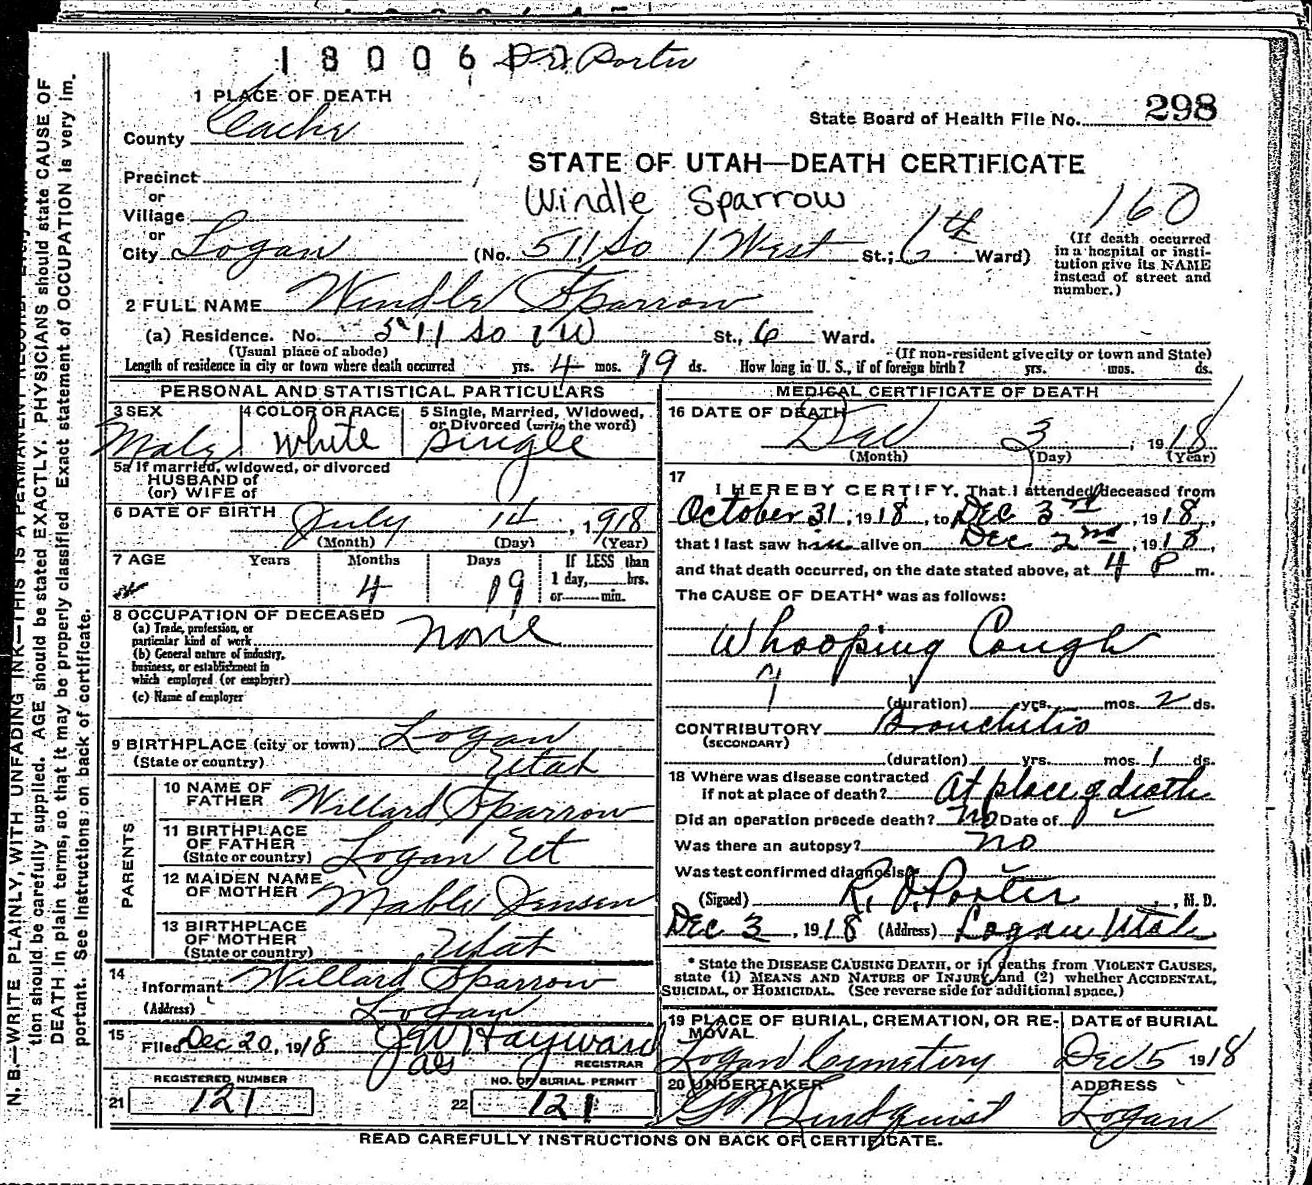 18006 Dr Porter
1 PLACE OF DEATH
County Cache
State Board of Health File No. 298
STATE OF UTAH—DEATH CERTIFICATE
Precinct
or
Village
or
Windle Sparrow
160
City Logan (No. 511 So 1 West St.; 6th Ward)
(If death occurred in a hospital or institution give its NAME instead of street and number.)
2 FULL NAME Windle Sparrow
(a) Residence. No. 511 So 1 W St., 6 Ward.
(Usual place of abode) (If non-resident give city or town and State)
Length of residence in city or town where death occurred yrs. 4 mos. 19 ds. How long in U. S., if of foreign birth? yrs. mos. ds.
PERSONAL AND STATISTICAL PARTICULARS
3 SEX Male
4 COLOR OR RACE White
5 Single, Married, Widowed, or Divorced (write the word) Single
5a If married, widowed, or divorced
HUSBAND of
(or) WIFE of
6 DATE OF BIRTH July 14, 1918
(Month) (Day) (Year)
7 AGE Years Months Days If LESS than
4 19 1 day, hrs.
or min.
8 OCCUPATION OF DECEASED
(a) Trade, profession, or
particular kind of work none
(b) General nature of industry,
business, or establishment in
which employed (or employer)
(c) Name of employer
9 BIRTHPLACE (city or town) Logan
(State or country) Utah
PARENTS
10 NAME OF
FATHER Willard Sparrow
11 BIRTHPLACE
OF FATHER
(State or country) Logan Ut
12 MAIDEN NAME
OF MOTHER Mable Jensen
13 BIRTHPLACE
OF MOTHER
(State or country) Utah
14
Informant Willard Sparrow
(Address) Logan
15
Filed Dec 20, 1918 J W Hayward
REGISTRAR
21 REGISTERED NUMBER 121
22 NO. OF BURIAL PERMIT 121
MEDICAL CERTIFICATE OF DEATH
16 DATE OF DEATH
Dec 3, 1918
(Month) (Day) (Year)
17
I HEREBY CERTIFY, That I attended deceased from
October 31, 1918, to Dec 3rd, 1918,
that I last saw him alive on Dec 2nd, 1918,
and that death occurred, on the date stated above, at 4 P m.
The CAUSE OF DEATH* was as follows:
Whooping Cough
(duration) yrs. mos. 2 ds.
CONTRIBUTORY Bronchitis
(SECONDARY)
(duration) yrs. mos. 1 ds.
18 Where was disease contracted
if not at place of death? At place of death
Did an operation precede death? no Date of
Was there an autopsy? no
Was test confirmed diagnosis?
(Signed) R. J. Porter, M. D.
Dec 3, 1918 (Address) Logan Utah
* State the DISEASE CAUSING DEATH, or in deaths from VIOLENT CAUSES,
state (1) MEANS AND NATURE OF INJURY, and (2) whether ACCIDENTAL,
SUICIDAL, or HOMICIDAL. (See reverse side for additional space.)
19 PLACE OF BURIAL, CREMATION, OR REMOVAL
Logan Cemetery
DATE OF BURIAL
Dec 5 1918
20 UNDERTAKER
G W Lindquist
ADDRESS
Logan
READ CAREFULLY INSTRUCTIONS ON BACK OF CERTIFICATE.
N. B.—WRITE PLAINLY, WITH UNFADING INK—THIS IS A PERMANENT RECORD.
tion should be carefully supplied. AGE should be stated EXACTLY. PHYSICIANS should state CAUSE OF
DEATH in plain terms, so that it may be properly classified. Exact statement of OCCUPATION is very im-
portant. See Instructions on back of certificate.